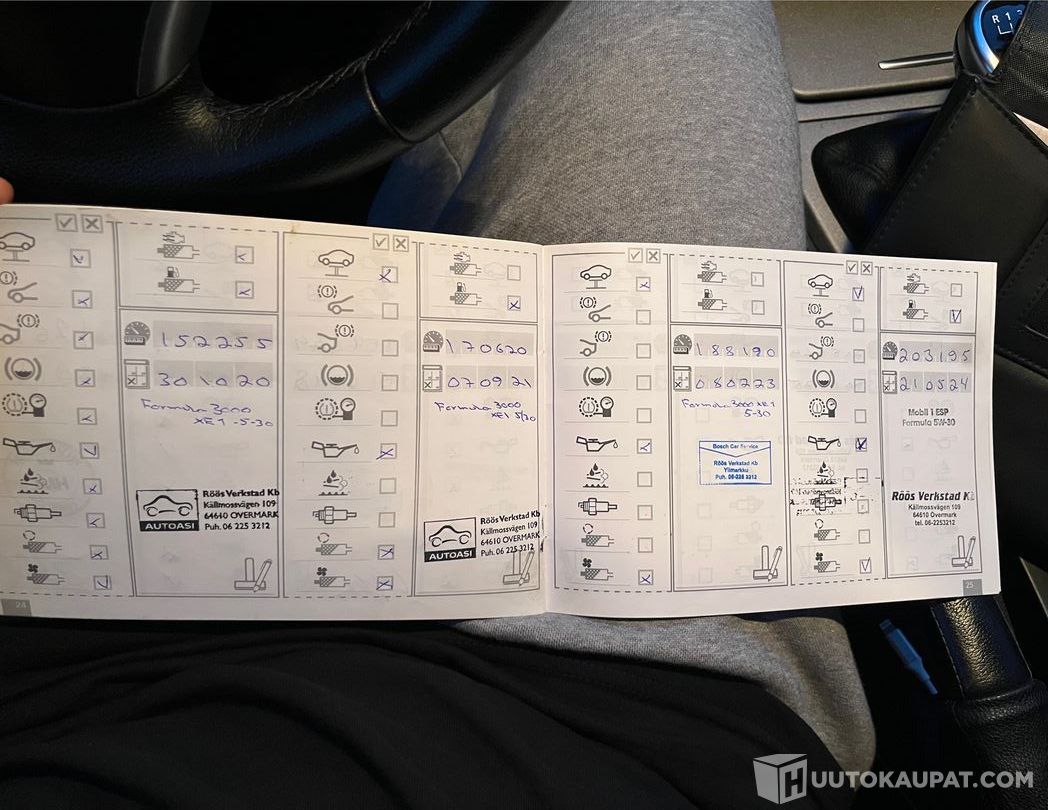 R 1 3
152255
301020
Formula 3000
XE1 -5-30
AUTOASI
Röös Verkstad Kb
Källmossvägen 109
64610 ÖVERMARK
Puh. 06 225 3212
24
170620
070921
Formula 3000
XE1 5/30
AUTOASI
Röös Verkstad Kb
Källmossvägen 109
64610 ÖVERMARK
Puh. 06 225 3212
188190
080223
Formula 3000 XE1
5-30
Bosch Car Service
Röös Verkstad Kb
Ylimarkku
203195
210524
Mobil 1 ESP
Formula 5W-30
Röös Verkstad Kb
Källmossvägen 109
64610 Övermark
tel. 06-2253212
25
HUUTOKAUPAT.COM